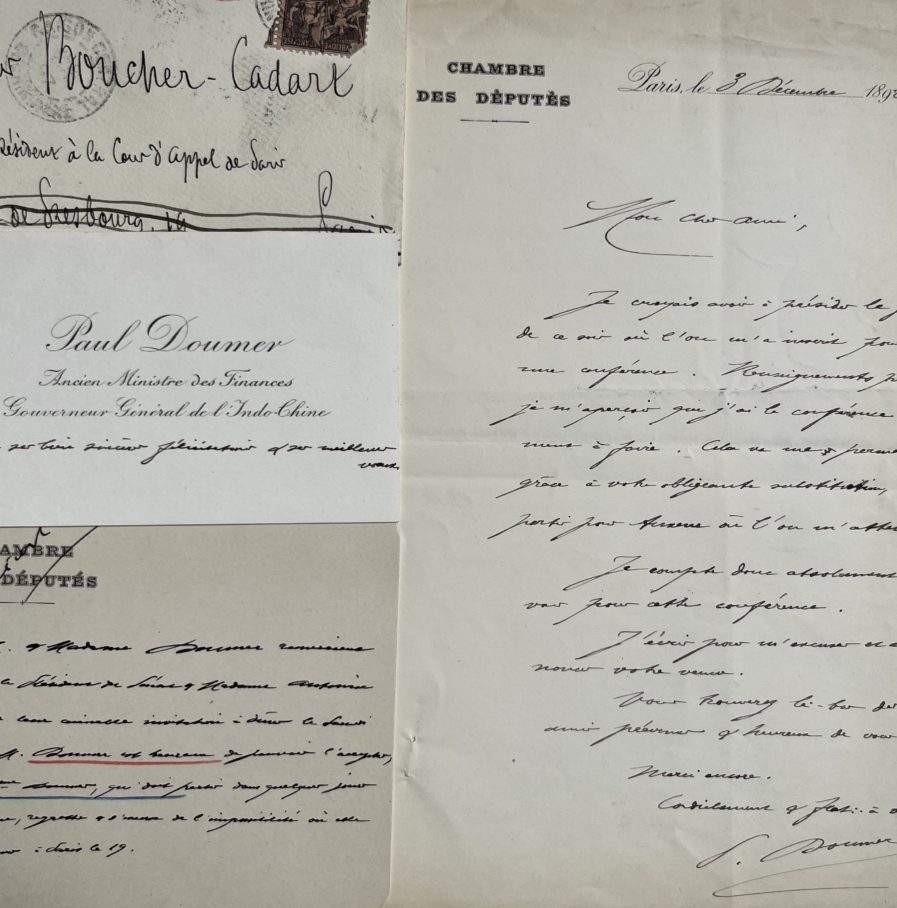 Boucher-Cadart
Président à la Cour d'Appel de Paris
de Strasbourg, 19
Paul Doumer
Ancien Ministre des Finances
Gouverneur Général de l'Indo-Chine
ses bien sincères félicitations & ses meilleurs
vœux
AMBRE
DÉPUTÉS
& Madame Doumer remercient
Madame
aimable invitation à dîner le
M. Doumer est heureux de pouvoir l'accepter,
Doumer, qui doit partir dans quelques jours
regrette & s'excuse de l'impossibilité où elle
à Paris le 19.
CHAMBRE
DES DÉPUTÉS
Paris, le 3 Décembre 189
Mon cher ami,
Je croyais avoir à présider le
de ce soir où l'on m'a inscrit pour
une conférence. Renseignements
je m'aperçois que j'ai la conférence
ment à faire. Cela va me
grâce à votre obligeante substitution,
partir pour Auxerre où l'on m'
Je compte donc absolument
vous pour cette conférence.
J'écris pour m'excuser et
noncer votre venue.
Vous trouverez là-bas des
amis prévenus & heureux de vous
Merci encore.
Cordialement & à
P. Doumer